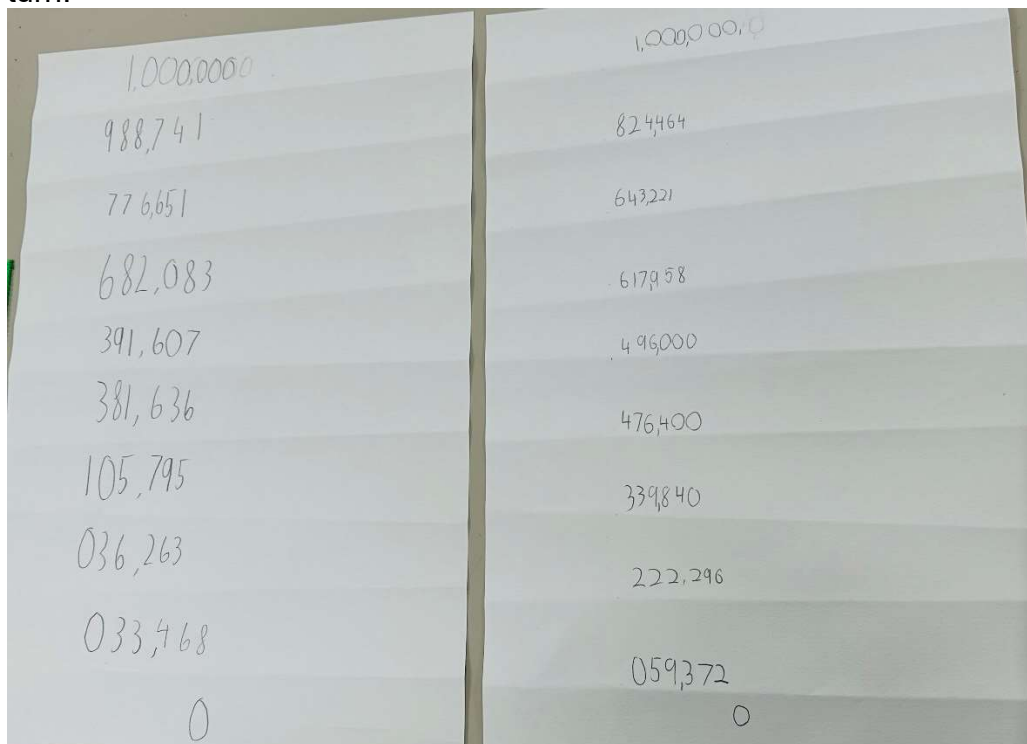 1,000,0000
988,741
776,651
682,083
391,607
381,636
105,795
036,263
033,468
0
1,000,00,0
824,464
643,221
617,958
496,000
476,400
339,840
222,296
059,372
0